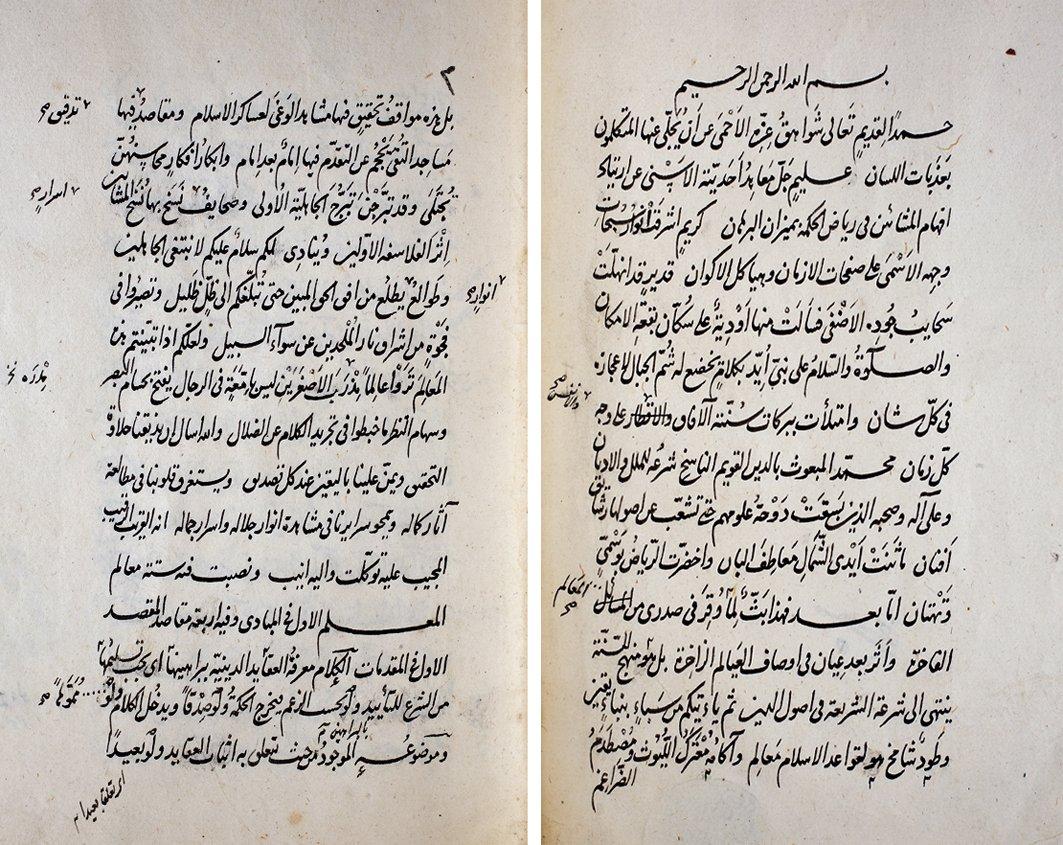 بسم الله الرحمن الرحيم
حمداً لقديم تعالى شواهق عزه الاحمى عن أن يجلى عنها المتكلمون
بعذبات اللسان عليم جل معاهد أحديته الاسنى عن ارتياد
افهام المشائين فى رياض الحكمة بميزان البرهان كريم اشرقت انوار سبحات
وجهه الاسمى على صفحات الازمان وهياكل الاكوان قدير قد انهلت
سحايب جوده الاصفى فسالت منها أودية على سكان بقعة الامكان
والصلوة والسلام على نبى أيد بكلام تخضع له شم الجبال لاعجازه
فى كل شان وامتلأت ببركات سنته الآفاق والاقطار على وجه
والانفس صح
كل زمان محمد المبعوث بالدين القويم الناسخ شرعه للملل والاديان
وعلى آله وصحبه الذين بسقت دوحة علومهم حتى تشعب عن اصولها رشاق
أفنان ما ثنت أيدى الشمال معاطف البان واخضرت الرياض بوسمى
وتهتان امّا بعد فهذا بث لما وقر فى صدرى من المسائل
المعالم صح
الفاخرة وأثر بعد عيان فى اوصاف العيالم الزاخرة بل هو منهج للسنة
ينتهى الى شرعة الشريعة فى اصول الدين ثم يأتيكم من سباء بنباء يقين
وطود شامخ هو لقواعد الاسلام معالم وآكامه معترك الليوث ومصطدم
الضراغم
٢
بل هذه مواقف تحقيق فيها مشاهد الوغى لعساكر الاسلام ومقاصد فيها
تدقيق صح
مساجد التقى يحجم عن التقدم فيها امام بعد امام وابكار افكار محاسنهن
تجتلى وقد تبرجن تبرج الجاهلية الاولى وصحايف نسخ بها نسخ المشائين
اسرار صح
اثر الفلاسفة الاولين وينادى لكم سلام عليكم لا نبتغى الجاهلين
وطوالع يطلع من افق الحق المبين حتى تبلغكم الى ظل ظليل وتصيروا فى
انوار صح
فجوة من اشراق نار الملحدين عن سوآء السبيل ولعلكم اذا تبينتم هذه
المعالم تروا عالما بذرب الاصغرين ليس بامعة فى الرجال يفتح بحسام البصر
وسهام النظر ما خبطوا فى تجريد الكلام عن الضلال والله اسال ان يذيقنا حلاوة
التحقيق ويمن علينا باليقين عند كل تصديق ويستغرق قلوبنا فى مطالعة
آثار كماله ويمحو سرايرنا فى مشاهدة انوار جلاله واسرار جماله انه القريب
المجيب عليه توكلت واليه انيب ونصبت فيه ستة معالم
المعلم الاول فى المبادى وفيه اربعة مقاصد المقصد
الاول فى المقدمات الكلام معرفة العقايد الدينية ببراهينها اى يجب تسليمها
من الشرع للتأييد ولو بحسب الزعم فيخرج الحكمة ولو صدقا ويدخل الكلام ولو
وموضوعه الموجود من حيث تتعلق به اثبات العقايد ولو بعيداً